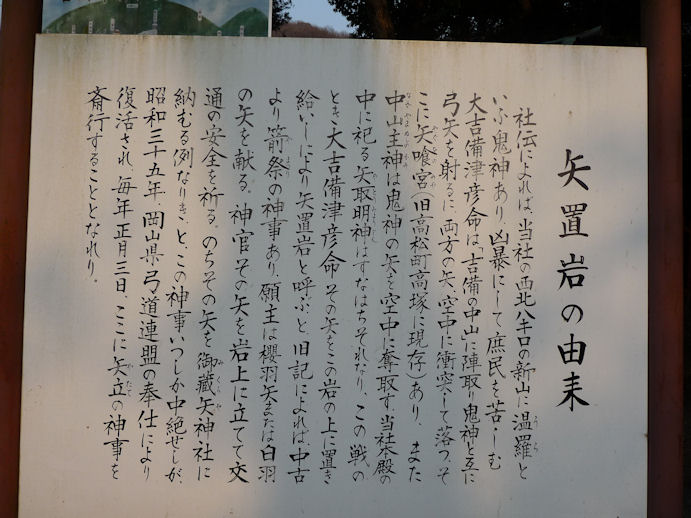 矢置岩の由来
社伝によれば、当社の西北八キロの新山に温羅と
いふ鬼神あり、凶暴にして庶民を苦しむ
大吉備津彦命は、吉備の中山に陣取り鬼神と互に
弓矢を射るに、両方の矢、空中に衝突して落つ。そ
こに矢喰宮(旧高松町高塚に現存)あり、また
中山主神は鬼神の矢を空中に奪取す。当社本殿の
中に祀る矢取明神はすなはちそれなり、この戦の
とき大吉備津彦命その矢をこの岩の上に置き
給いしにより矢置岩と呼ぶと、旧記によれば、中古
より箭祭の神事あり、願主は櫻羽矢または白羽
の矢を献る。神官その矢を岩上に立てて交
通の安全を祈る。のちその矢を御蔵矢神社に
納むる例なりきと、この神事いつしか中絶せしが、
昭和三十五年、岡山県弓道連盟の奉仕により
復活され、毎年正月三日、ここに矢立の神事を
斎行することとなれり。